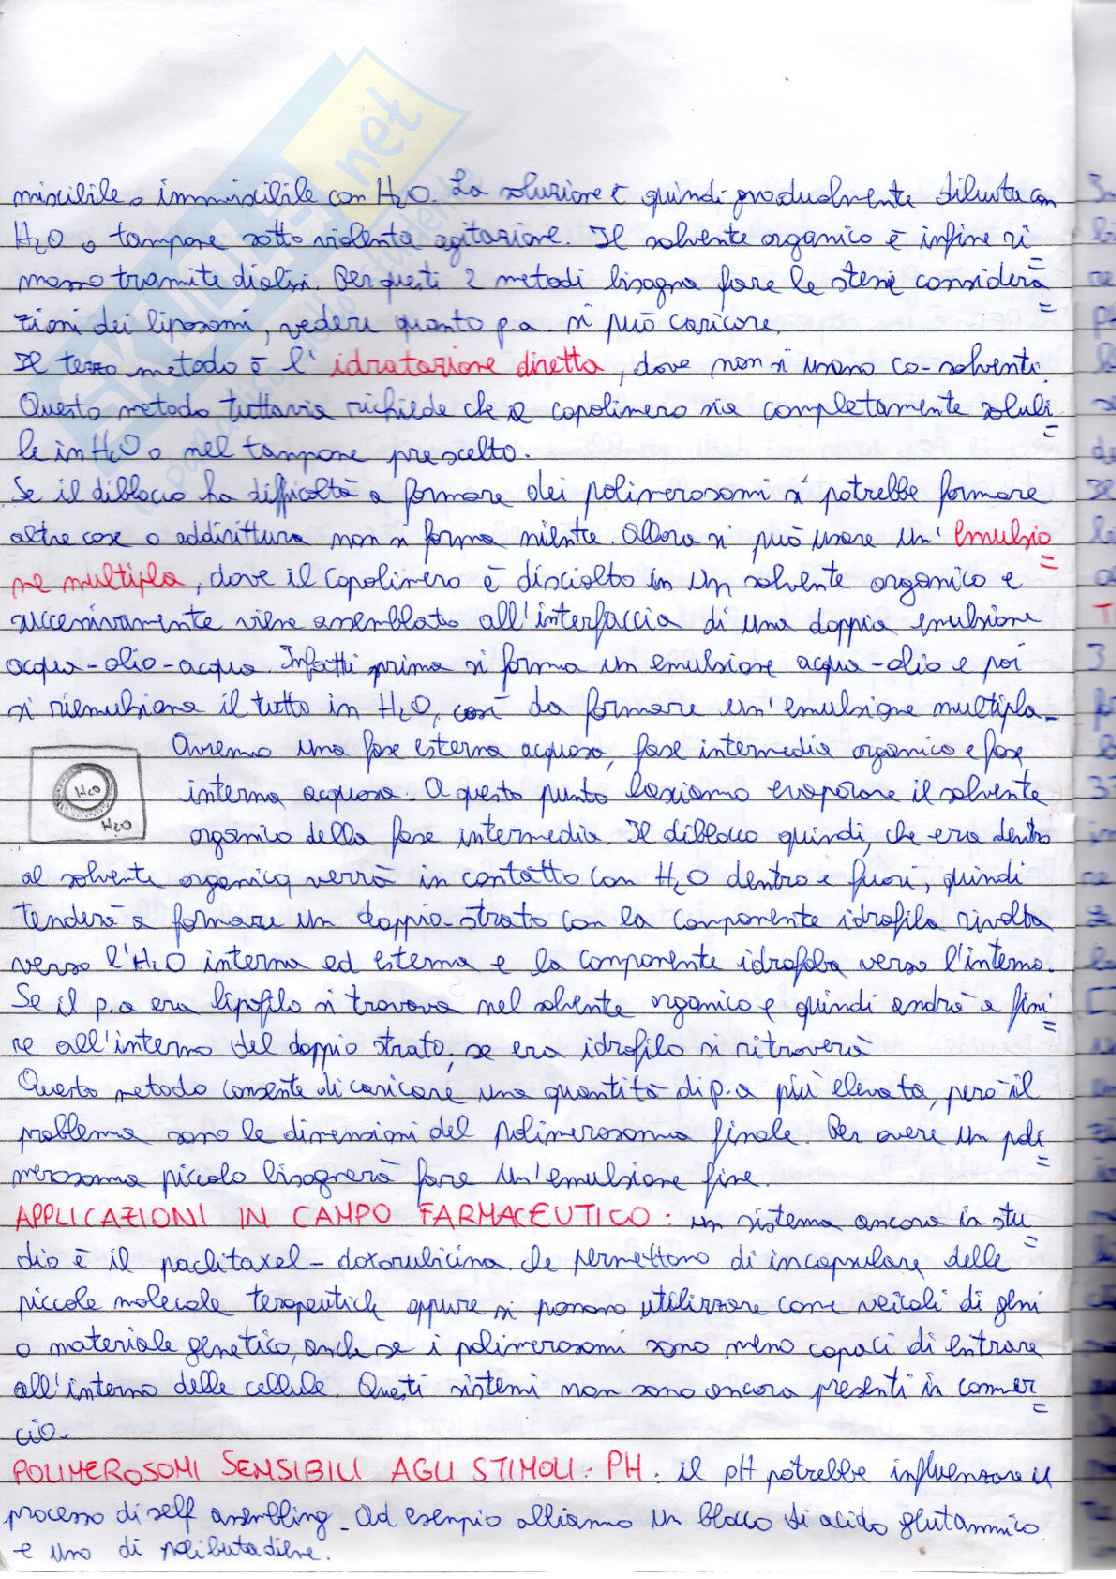 miscibile o immiscibile con H₂O. La soluzione è quindi gradualmente diluita con
H₂O o tampone sotto violenta agitazione. Il solvente organico è infine ri
mosso tramite dialisi. Per questi 2 metodi bisogna fare le stesse considera
zioni dei liposomi, vedere quanto p.a. si può caricare.
Il terzo metodo è l'idratazione diretta, dove non si usano co-solventi.
Questo metodo tuttavia richiede che il copolimero sia completamente solubi
le in H₂O o nel tampone prescelto.
Se il diblocco ha difficoltà a formare dei polimerosomi si potrebbe formare
altre cose o addirittura non si forma niente. Allora si può usare un'emulsio
ne multipla, dove il copolimero è disciolto in un solvente organico e
successivamente viene assemblato all'interfaccia di una doppia emulsione
acqua-olio-acqua. Infatti prima si forma un emulsione acqua-olio e poi
si riemulsiona il tutto in H₂O, così da formare un'emulsione multipla.
Avremo una fase esterna acquosa, fase intermedia organica e fase
interna acquosa. A questo punto lasciamo evaporare il solvente
H₂O
H₂O
organico della fase intermedia. Il diblocco quindi, che era dentro
al solvente organico, verrà in contatto con H₂O dentro e fuori, quindi
tenderà a formare un doppio strato con la componente idrofila rivolta
verso l'H₂O interna ed esterna e la componente idrofoba verso l'interno.
Se il p.a era lipofilo si trovava nel solvente organico e quindi andrà a fini
re all'interno del doppio strato, se era idrofilo si ritroverà
Questo metodo consente di caricare una quantità di p.a più elevata, però il
problema sono le dimensioni del polimerosoma finale. Per avere un poli
merosoma piccolo bisognerà fare un'emulsione fine.
APPLICAZIONI IN CAMPO FARMACEUTICO: un sistema ancora in stu
dio è il paclitaxel-doxorubicina che permettono di incapsulare delle
piccole molecole terapeutiche oppure si possono utilizzare come veicoli di geni
o materiale genetico, anche se i polimerosomi sono meno capaci di entrare
all'interno delle cellule. Questi sistemi non sono ancora presenti in commer
cio.
POLIMEROSOMI SENSIBILI AGLI STIMOLI: PH: il pH potrebbe influenzare il
processo di self assembling. Ad esempio abbiamo un blocco di acido glutammico
e uno di polibutadiene.